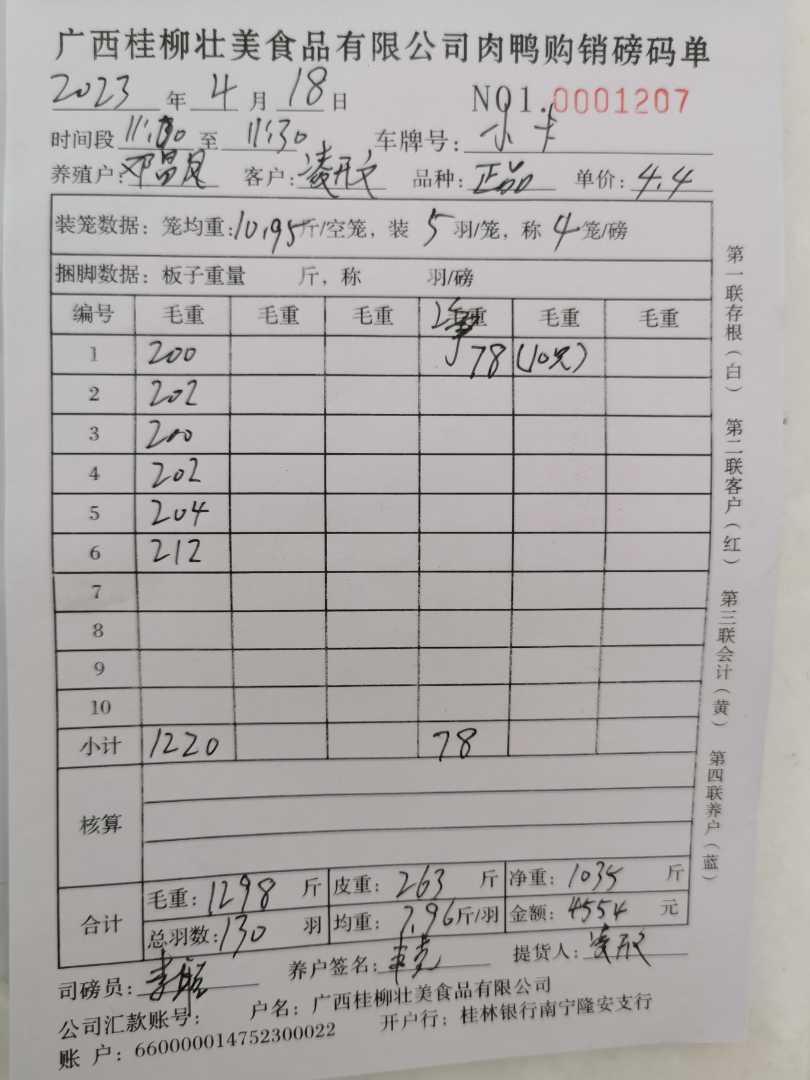 广西桂柳壮美食品有限公司肉鸭购销磅码单
2023年4月18日 NO1.0001207
时间段11:30至11:30 车牌号:小卡
养殖户: 客户: 品种:正品 单价:4.4
装笼数据:笼均重:10.95斤/空笼,装5羽/笼,称4笼/磅
捆脚数据:板子重量 斤,称 羽/磅
编号 毛重 毛重 毛重 净重 毛重 毛重
1 200 78 (10只)
2 202
3 200
4 202
5 204
6 212
7
8
9
10
小计 1220 78
核算
合计 毛重:1298斤 皮重:263斤 净重:1035斤
总羽数:130羽 均重:7.96斤/羽 金额:4554元
司磅员: 养户签名: 提货人:
公司汇款账号: 户名:广西桂柳壮美食品有限公司
账 户:660000014752300022 开户行:桂林银行南宁隆安支行
第一联存根(白)
第二联客户(红)
第三联会计(黄)
第四联养户(蓝)